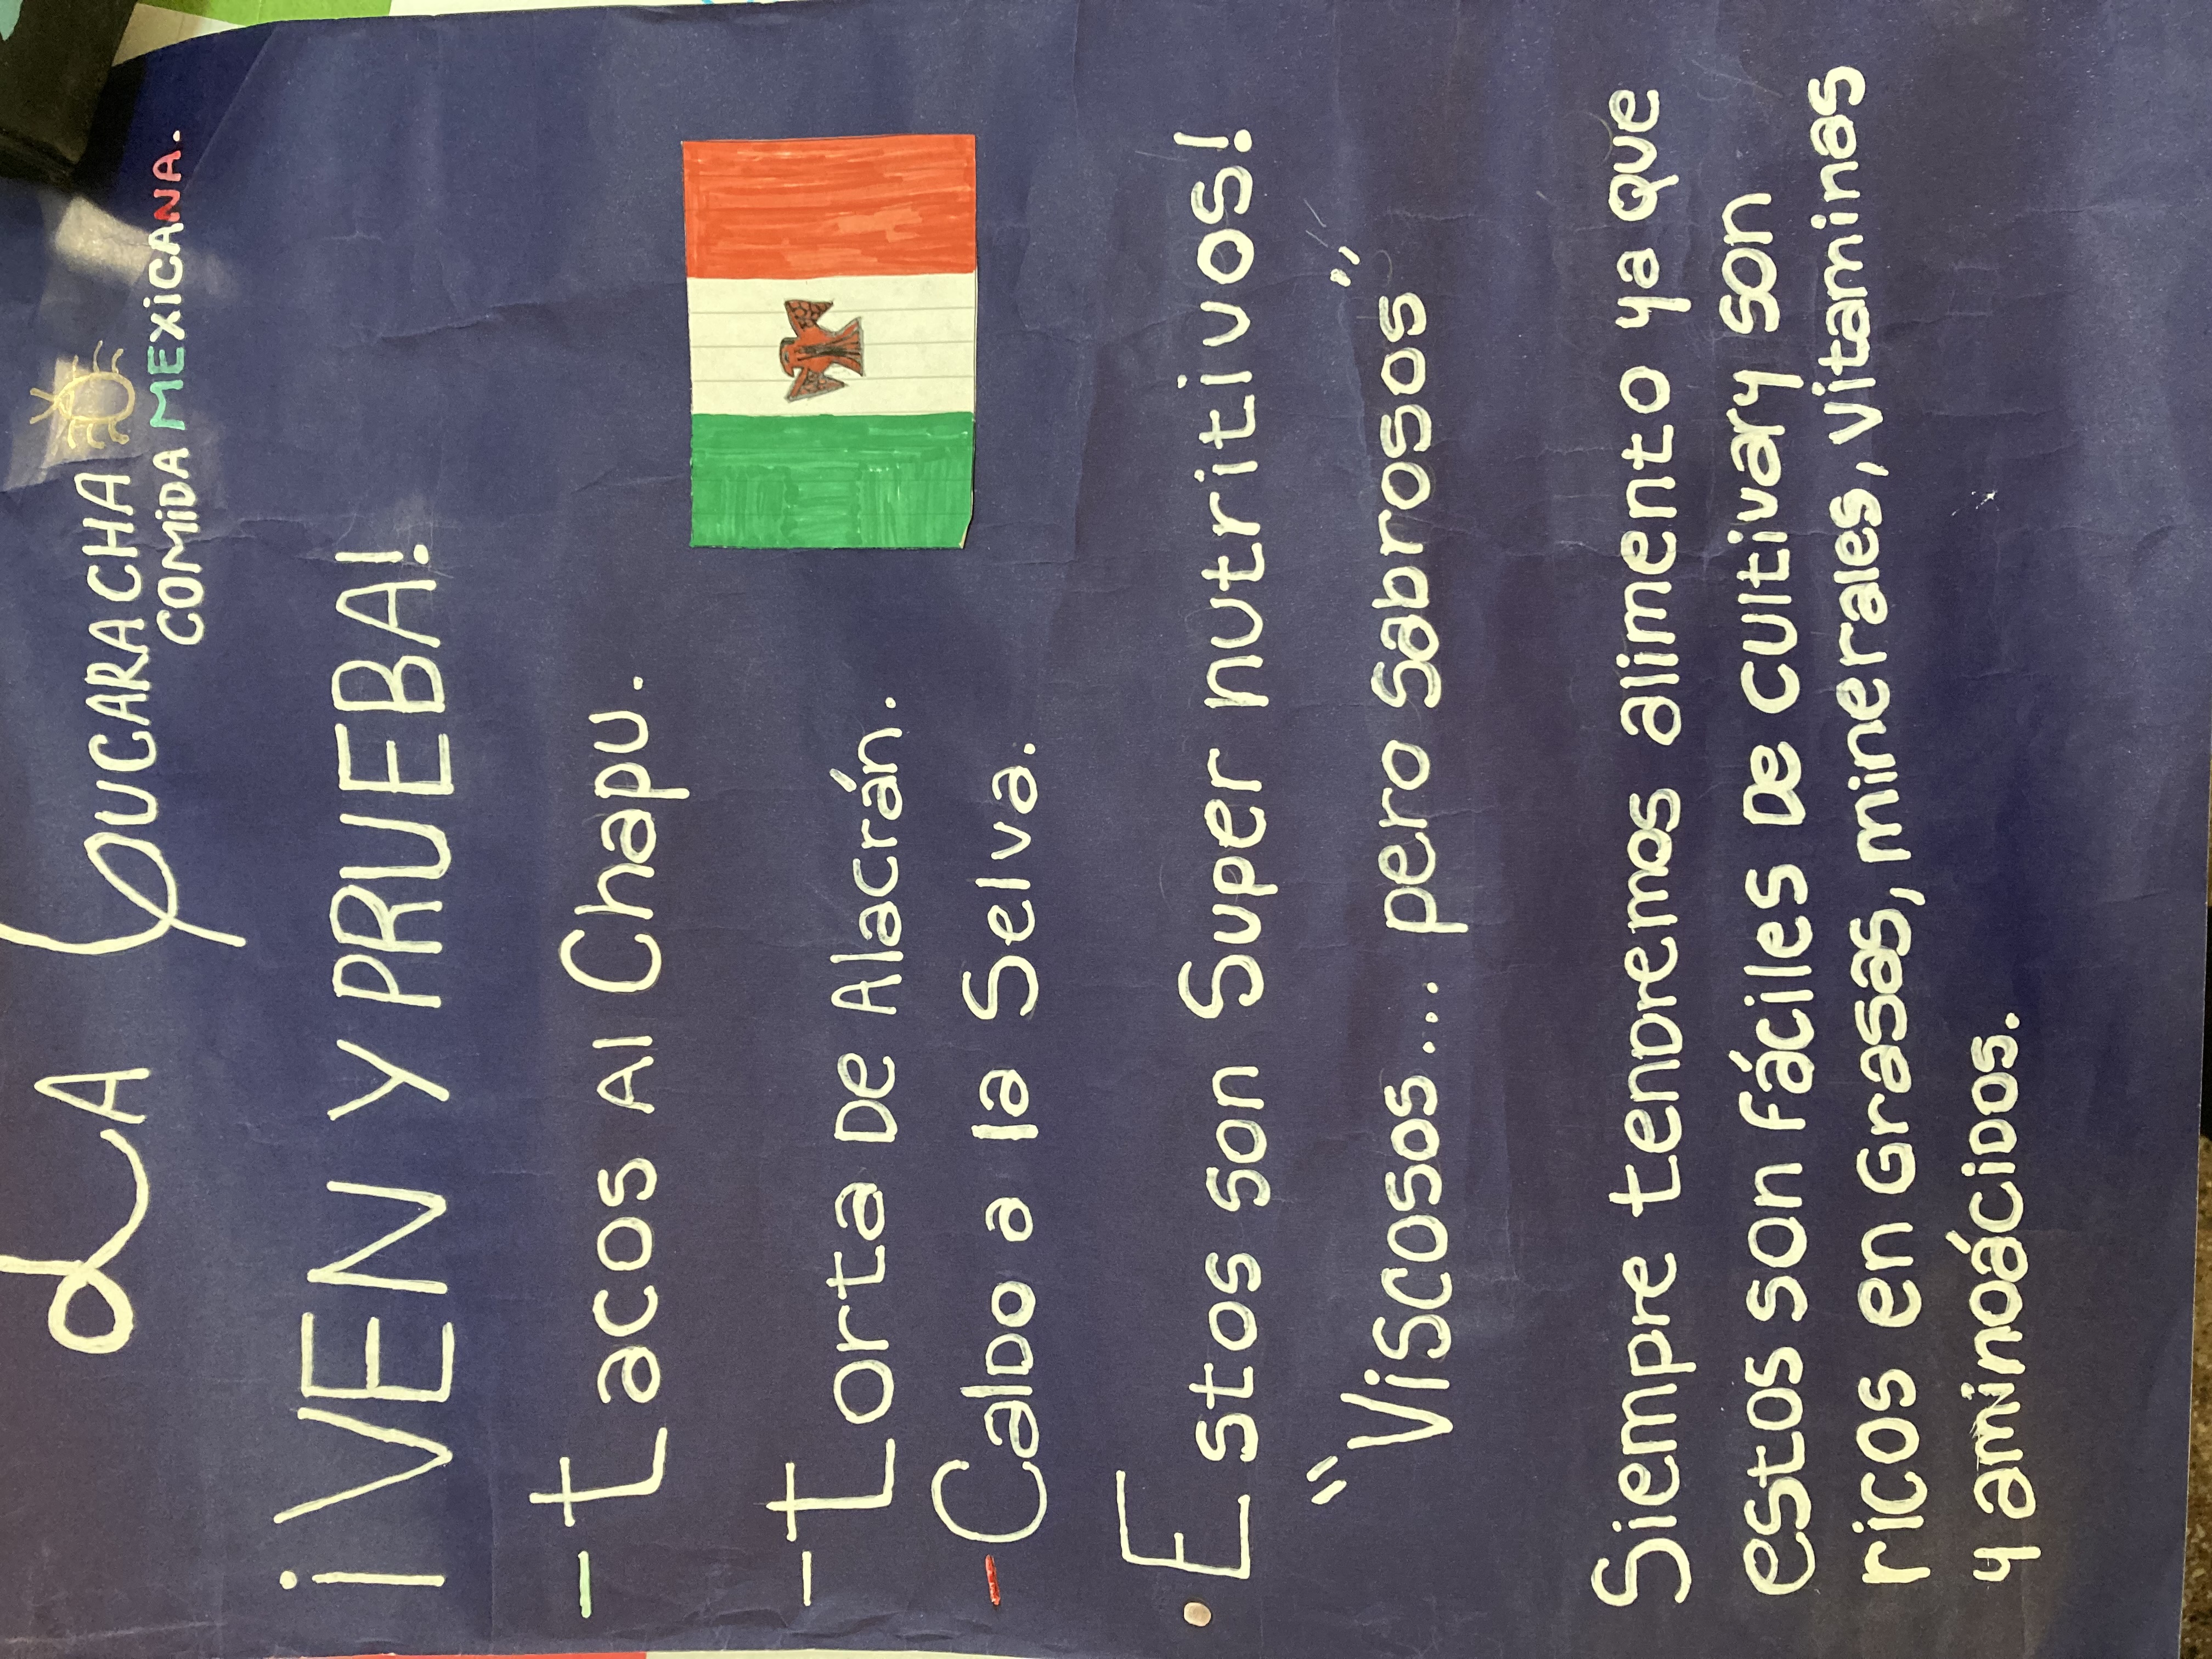 LA COUCARACHA
COMIDA MEXICANA.
¡VEN Y PRUEBA!
- tacos Al Chapu.
- torta De Alacrán.
- Caldo a la Selva.
• Estos son Super nutritivos!
"Viscosos.... pero Sabrosos"
Siempre tendremos alimento ya que
estos son fáciles de cultivar y son
ricos en Grasas, minerales, vitaminas
y aminoácidos.